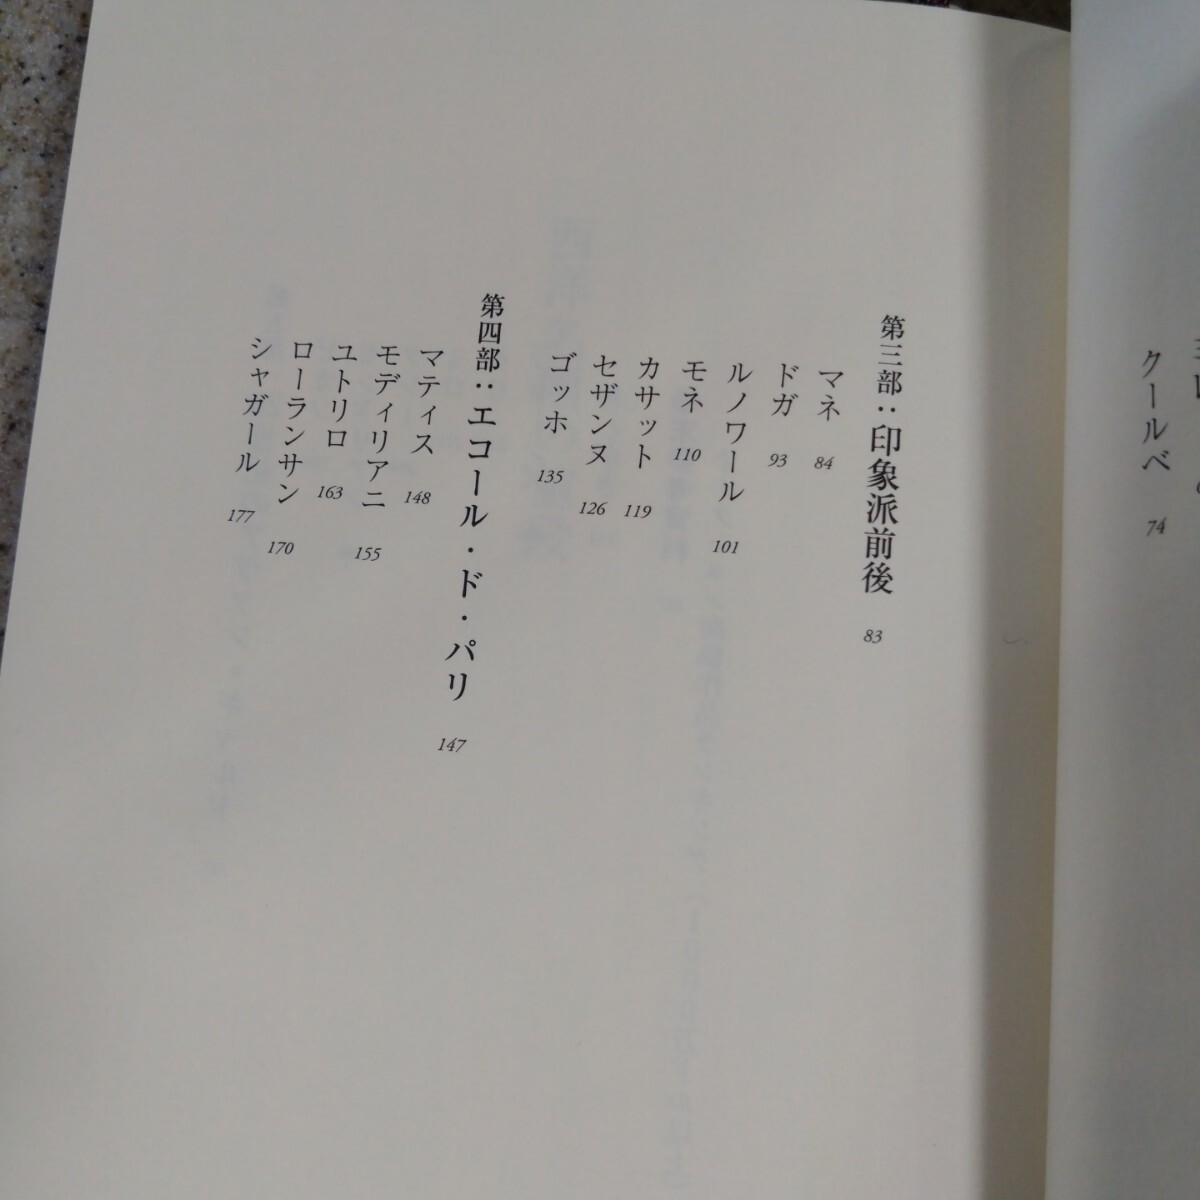 クールベ 74
第三部：印象派前後 83
マネ 84
ドガ 93
ルノワール 101
モネ 110
カサット 119
セザンヌ 126
ゴッホ 135
第四部：エコール・ド・パリ 147
マティス 148
モディリアニ 155
ユトリロ 163
ローランサン 170
シャガール 177